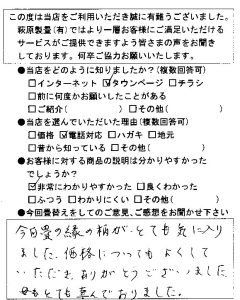 この度は当店をご利用いただき誠に有難うございました。
萩原製畳(有)ではより一層お客様にご満足いただける
サービスがご提供できますよう皆さまの声をお聞き
しております。何卒ご協力お願いいたします。
●当店をどのように知りましたか？(複数回答可)
□インターネット ☑タウンページ □チラシ
□前に何度かお願いしたことがある
□ご紹介( ) □その他( )
●当店を選んでいただいた理由(複数回答可)
□価格 ☑電話対応 □ハガキ □地元
□昔から知っている □その他( )
●お客様に対する商品の説明は分かりやすかった
でしょうか？
☑非常にわかりやすかった □良くわかった
□ふつう □わかりにくい □その他( )
●今回畳替えをしてのご意見、ご感想をお聞かせ下さい
今回畳の縁の柄が、とても気に入り
ました。価格についてもよくして
いただき、ありがとうございました
母もとても喜んでおりました。